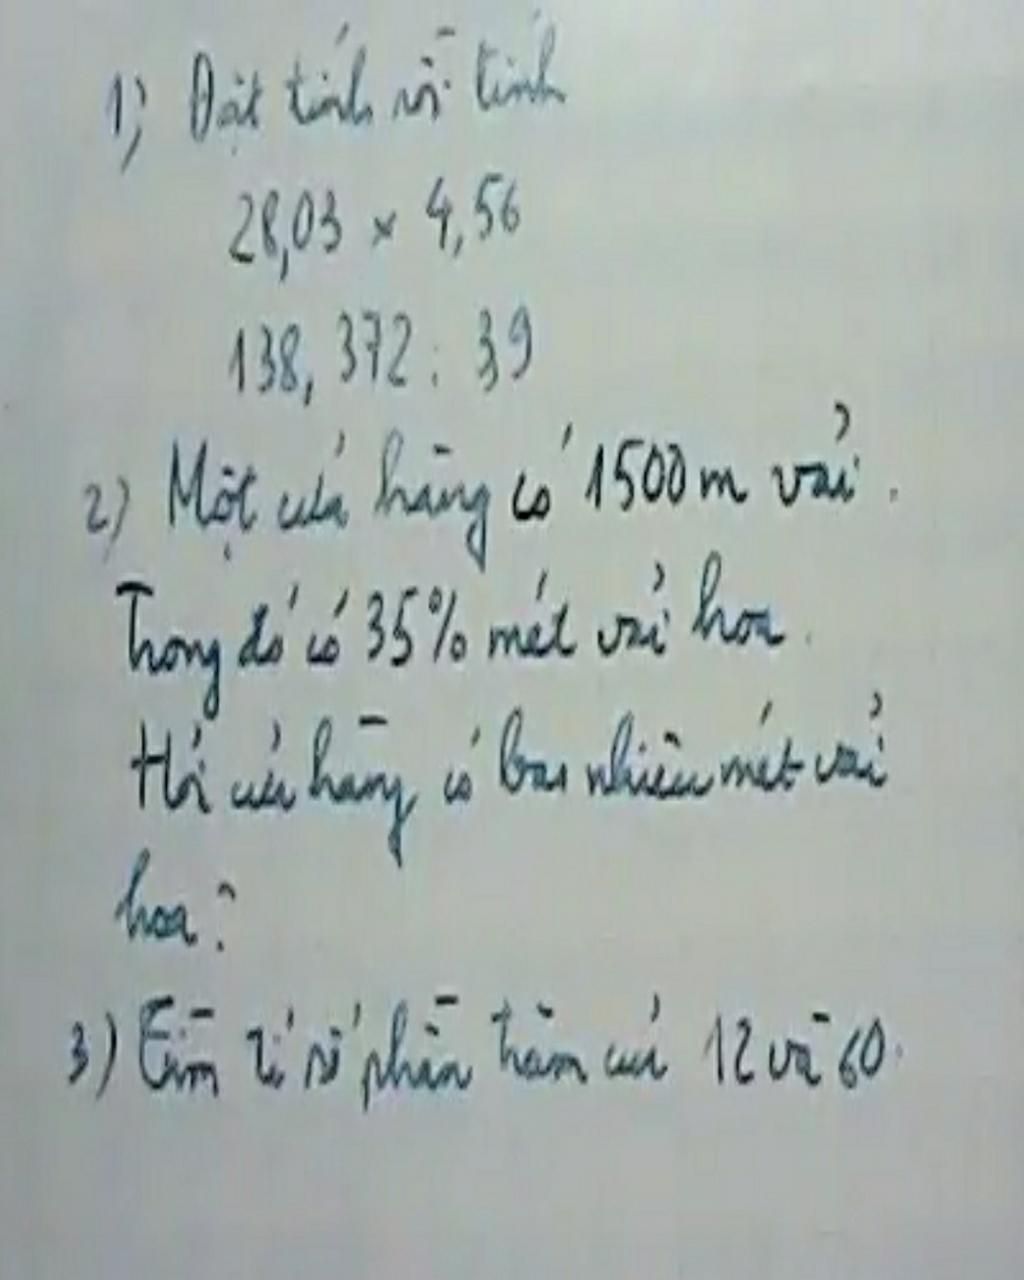 1) Đặt tính rồi tính
28,03 × 4,56
138,372 : 39
2) Một cửa hàng có 1500m vải.
Trong đó có 35% mét vải hoa.
Hỏi cửa hàng có bao nhiêu mét vải
hoa?
3) Tìm tỉ số phần trăm của 12 và 60.